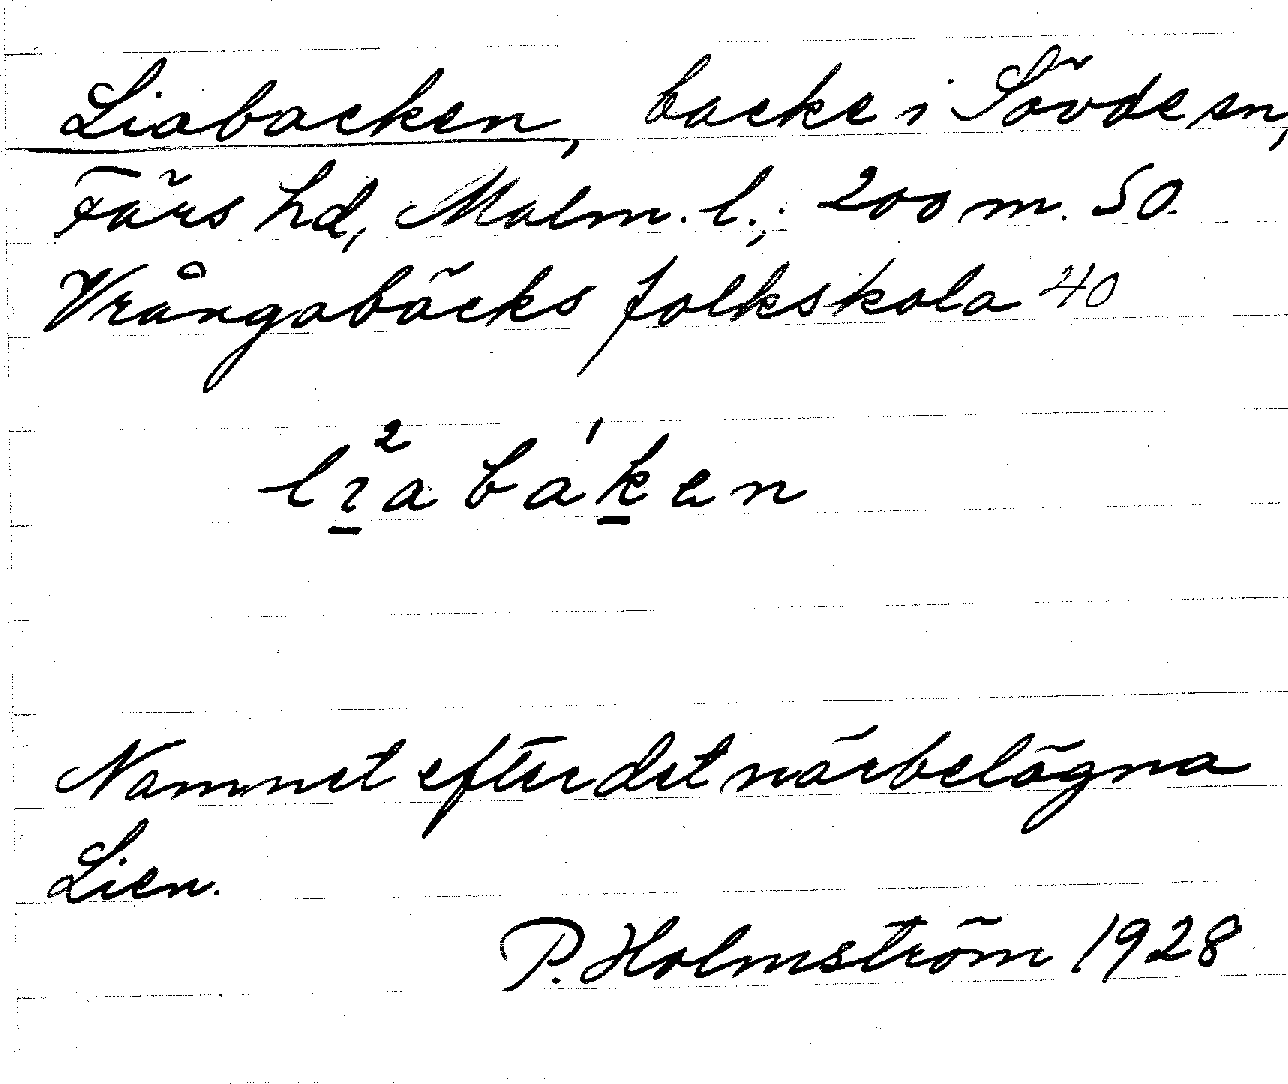 Liabacken, backe i Sövde sn,
Färs hd, Malm. l.; 200 m. SO.
Vrångabäcks folkskola 40
lı̱²aba'ḵen
Namnet efter det närbelägna
Lien.
P. Holmström 1928